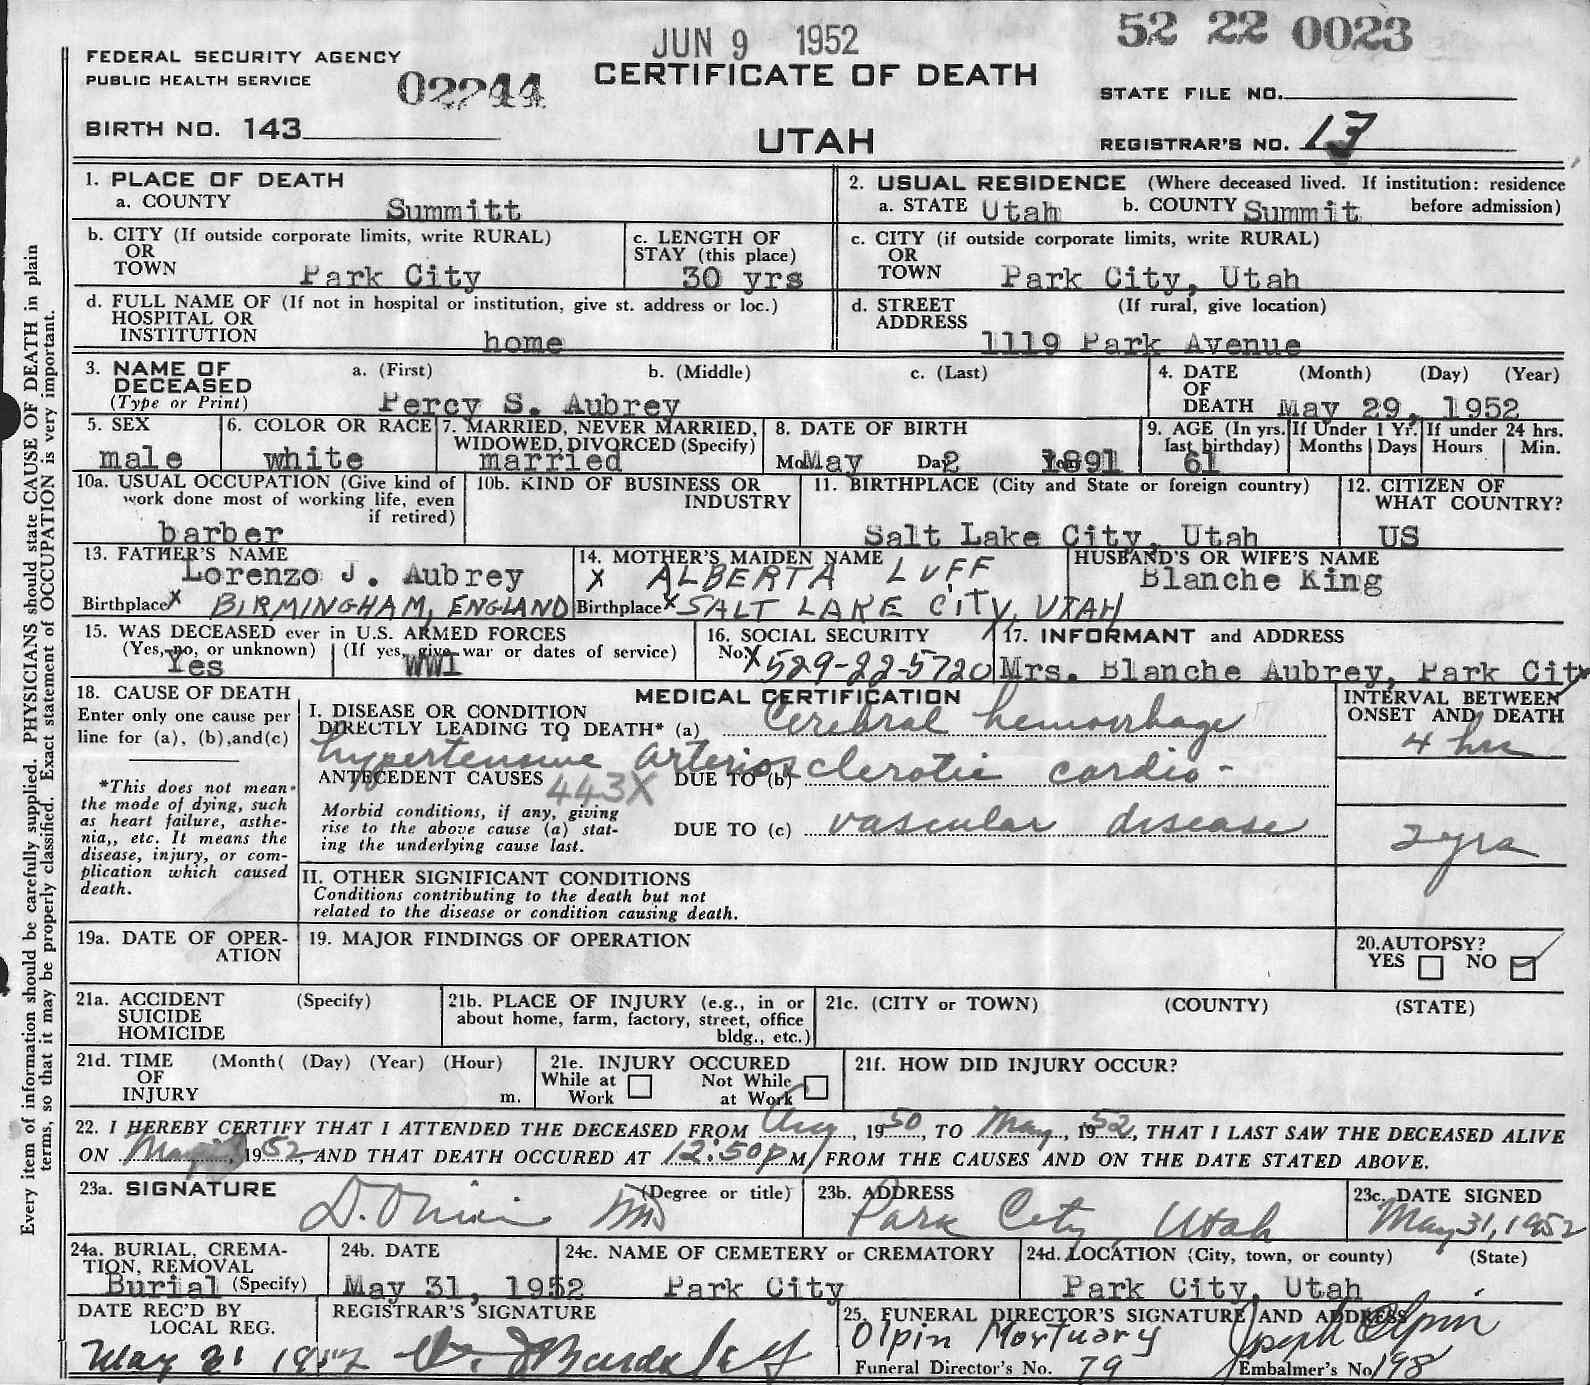 JUN 9 1952
52 22 0023
FEDERAL SECURITY AGENCY
PUBLIC HEALTH SERVICE
02244
CERTIFICATE OF DEATH
STATE FILE NO.
BIRTH NO. 143
UTAH
REGISTRAR'S NO. 13
Every item of information should be carefully supplied. PHYSICIANS should state CAUSE OF DEATH in plain
terms, so that it may be properly classified. Exact statement of OCCUPATION is very important.
1. PLACE OF DEATH
a. COUNTY Summitt
2. USUAL RESIDENCE (Where deceased lived. If institution: residence
a. STATE Utah b. COUNTY Summit before admission)
b. CITY (If outside corporate limits, write RURAL)
OR
TOWN Park City
c. LENGTH OF
STAY (this place)
30 yrs
c. CITY (if outside corporate limits, write RURAL)
OR
TOWN Park City, Utah
d. FULL NAME OF (If not in hospital or institution, give st. address or loc.)
HOSPITAL OR
INSTITUTION home
d. STREET (If rural, give location)
ADDRESS
1119 Park Avenue
3. NAME OF a. (First) b. (Middle) c. (Last)
DECEASED
(Type or Print) Percy S. Aubrey
4. DATE (Month) (Day) (Year)
OF
DEATH May 29, 1952
5. SEX
male
6. COLOR OR RACE
white
7. MARRIED, NEVER MARRIED,
WIDOWED, DIVORCED (Specify)
married
8. DATE OF BIRTH
Mo May Da 2 1891
9. AGE (In yrs. last birthday)
61
If Under 1 Yr.
Months Days
If under 24 hrs.
Hours Min.
10a. USUAL OCCUPATION (Give kind of
work done most of working life, even
if retired)
barber
10b. KIND OF BUSINESS OR
INDUSTRY
11. BIRTHPLACE (City and State or foreign country)
Salt Lake City, Utah
12. CITIZEN OF
WHAT COUNTRY?
US
13. FATHER'S NAME
Lorenzo J. Aubrey
Birthplace X BIRMINGHAM, ENGLAND
14. MOTHER'S MAIDEN NAME
X ALBERTA LUFF
Birthplace X SALT LAKE CITY, UTAH
HUSBAND'S OR WIFE'S NAME
Blanche King
15. WAS DECEASED ever in U.S. ARMED FORCES
(Yes, no, or unknown) (If yes, give war or dates of service)
Yes WWI
16. SOCIAL SECURITY
No. X 529-22-5720
17. INFORMANT and ADDRESS
Mrs. Blanche Aubrey, Park City
18. CAUSE OF DEATH
Enter only one cause per
line for (a), (b), and (c)
*This does not mean
the mode of dying, such
as heart failure, asthe-
nia,, etc. It means the
disease, injury, or com-
plication which caused
death.
MEDICAL CERTIFICATION
I. DISEASE OR CONDITION
DIRECTLY LEADING TO DEATH* (a) Cerebral hemorrhage
hypertensive arteriosclerotic cardio-
ANTECEDENT CAUSES 443X DUE TO (b)
Morbid conditions, if any, giving
rise to the above cause (a) stat-
ing the underlying cause last.
DUE TO (c) vascular disease
INTERVAL BETWEEN
ONSET AND DEATH
4 hrs
2 yrs
II. OTHER SIGNIFICANT CONDITIONS
Conditions contributing to the death but not
related to the disease or condition causing death.
19a. DATE OF OPER-
ATION
19. MAJOR FINDINGS OF OPERATION
20. AUTOPSY?
YES NO
21a. ACCIDENT (Specify)
SUICIDE
HOMICIDE
21b. PLACE OF INJURY (e.g., in or
about home, farm, factory, street, office
bldg., etc.)
21c. (CITY or TOWN) (COUNTY) (STATE)
21d. TIME (Month( (Day) (Year) (Hour)
OF
INJURY m.
21e. INJURY OCCURED
While at Work
Not While at Work
21f. HOW DID INJURY OCCUR?
22. I HEREBY CERTIFY THAT I ATTENDED THE DECEASED FROM Aug, 1950 TO May, 1952, THAT I LAST SAW THE DECEASED ALIVE
ON May, 1952, AND THAT DEATH OCCURED AT 12:50P M, FROM THE CAUSES AND ON THE DATE STATED ABOVE.
23a. SIGNATURE (Degree or title)
MD
23b. ADDRESS
Park City Utah
23c. DATE SIGNED
May 31, 1952
24a. BURIAL, CREMA-
TION, REMOVAL
Burial (Specify)
24b. DATE
May 31, 1952
24c. NAME OF CEMETERY or CREMATORY
Park City
24d. LOCATION (City, town, or county) (State)
Park City, Utah
DATE REC'D BY
LOCAL REG.
May 31 1952
REGISTRAR'S SIGNATURE
25. FUNERAL DIRECTOR'S SIGNATURE AND ADDRESS
Olpin Mortuary Joseph Olpin
Funeral Director's No. 79 Embalmer's No. 198